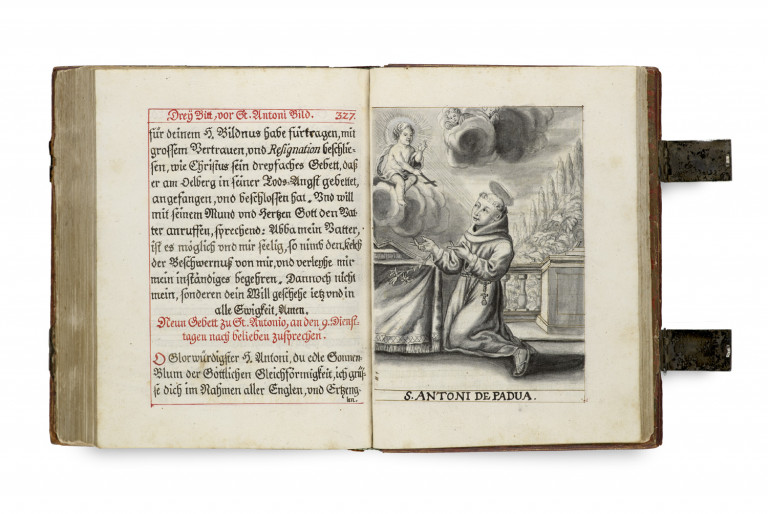 Dreÿ Bitt, vor St. Antoni Bild. 327.
für deinem H. Bildnus habe fürtragen, mit
grossem Vertrauen, und Resignation beschlie-
sen, wie Christus sein dreyfaches Gebett, daß
er am Oelberg in seiner Tods-Angst gebettet,
angefangen, und beschlossen hat. Und will
mit seinem Mund und Hertzen Gott den Vat-
ter anruffen, sprechend: Abba mein Vatter,
ist es möglich und mir seelig, so nimb den kelch
der Beschwernuß von mir, und verleyhe mir
mein inständiges begehren. Dannoch nicht
mein, sonderen dein Will geschehe ietz und in
alle Ewigkeit, Amen.
Neun Gebett zu St. Antonio, an den 9. Dienst-
tagen nach belieben zusprechen.
O Glorwürdigster H. Antoni, du edle Sonnen-
Blum der Göttlichen Gleichförmigkeit, ich grüs-
se dich im Nahmen aller Englen, und Ertzeng-
len,
S. ANTONI DE PADUA.